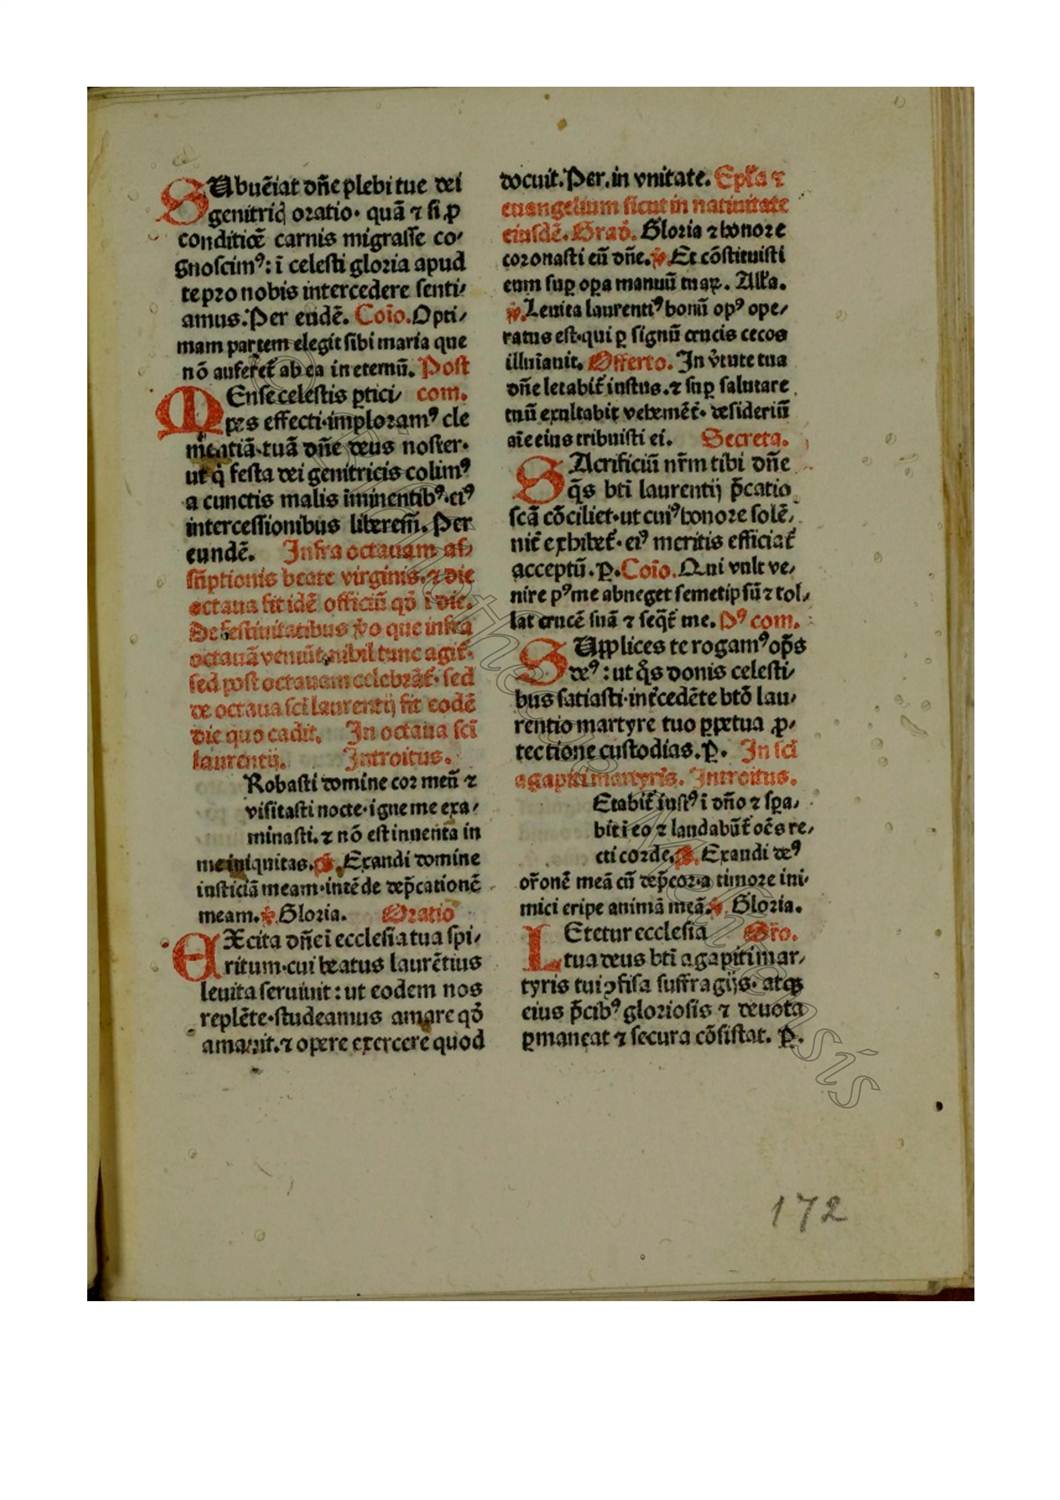 SUbuēiat dn̄e plebi tue dei
genitriꝗ oratio· quā ⁊ si ꝓ
conditiōe carnis migrasse co⸗
gnoscimꝰ: ī celesti gloria apud
te pro nobis intercedere senti⸗
amus. Per eundē. Coīo. Opti⸗
mam partem elegit sibi maria que
nō auferet̄ ab ea in eternū. Post
MEnse celestis ꝑtici⸗ com.
pes effecti·imploramꝰ cle
mētiā·tuā dn̄e deus noster·
ut q̄ festa dei genitricis colimꝰ
a cunctis malis īminentibꝰ·eiꝰ
intercessionibus liberem̄. Per
eundē. Infra octauam as⸗
sūptionis beate virginis.⁊ die
octaua fit idē officiū qd̄ ī die.
De festiuitatibus v̄o que infra
octauā veniūt·nihil tunc agit̄·
sed post octauam celebrāt̄· sed
de octaua scī laurentij fit eodē
die quo cadit. In octaua scī
laurentij. Introitus.
Robasti domine cor meū ⁊
visitasti nocte·igne me exa⸗
minasti.⁊ nō est inuenta in
me iniquitas. ℣. Exaudi domine
iusticiā meam·intēde dep̄cationē
meam. ℣. Gloria. Oratio
EXcita dn̄e ī ecclesia tua spi⸗
ritum·cui beatus laurētius
leuita seruiuit: ut eodem nos
replēte·studeamus amare qd̄
amauit.⁊ opere exercere quod
docuit. Per. in vnitate. Epl̄a ⁊
euangelium sicut in natiuitate
eiusdē. Grad̄. Gloria ⁊ honore
coronasti eū dn̄e. ℣. Et cōstituisti
eum suꝑ oꝑa manuū tuaꝝ. All̄a.
℣. Leuita laurentiꝰ bonū opꝰ ope⸗
ratus est·qui ꝑ signū crucis cecos
illuīauit. Offerto. In v̄tute tua
dn̄e letabit̄ iustus.⁊ suꝑ salutare
tuū exultabit vehemēt̄· desideriū
aīe eius tribuisti ei. Secreta.
SAcrificiū nr̄m tibi dn̄e
q̄s bt̄i laurentij p̄catio
scā cōciliet·ut cuiꝰ honore solē⸗
nit̄ exhibet̄· eiꝰ meritis efficiat̄
acceptū. ꝑ. Coīo. Qui vult ve⸗
nire pꝰ me abneget semetipsū ⁊ tol⸗
lat crucē suā ⁊ seqt̄ me. Pꝰ com.
SUpplices te rogamꝰ op̄s
deꝰ: ut q̄s donis celesti⸗
bus satiasti·int̄cedēte btō lau⸗
rentio martyre tuo ꝑpetua ꝓ⸗
tectione custodias. ꝑ. In scī
agapiti martyris. Introitus.
Etabit̄ iustꝰ ī dn̄o ⁊ sꝑa⸗
bit ī eo ⁊ laudabūt̄ oēs re⸗
cti corde. ℣. Exaudi deꝰ
or̄onē meā cū dep̄cor·a timore ini⸗
mici eripe animā meā. ℣. Gloria.
LEtetur ecclesia Oro.
tua deus bt̄i agapiti mar⸗
tyris tui ꝯfisa suffragijs· atqꝫ
eius p̄cibꝰ gloriosis ⁊ deuota
ꝑmaneat ⁊ secura cōsistat. ꝑ.
172